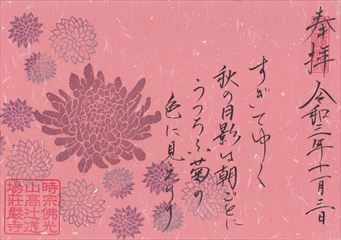 奉拝
令和二年十一月三日
すぎてゆく
秋の月影は朝ごとに
うつろふ菊の
色に見えけり
時宗佛光
山高辻道
場荘厳寺